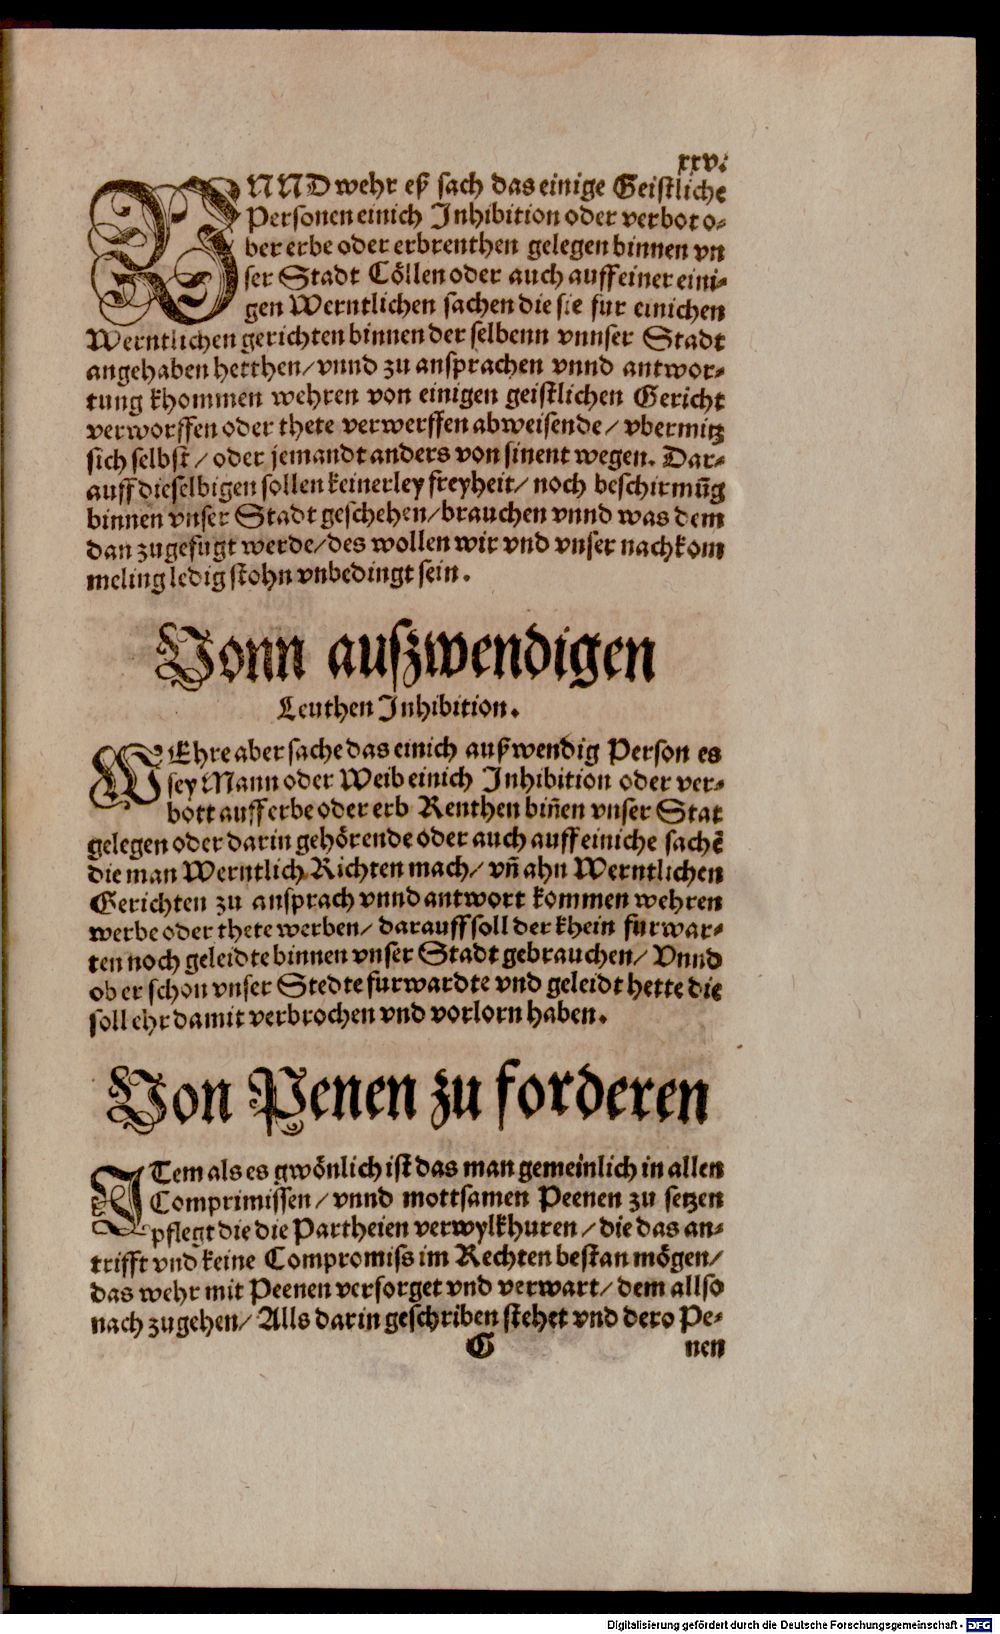 xxv.
VNND wehr eß sach das einige Geistliche
Personen einich Inhibition oder verbot o-
ber erbe oder erbrenthen gelegen binnen vn
ser Stadt Cöllen oder auch auff einer eini-
gen Werntlichen sachen die sie fur einichen
Werntlichen gerichten binnen der selbenn vnnser Stadt
angehaben hetthen/ vnnd zu ansprachen vnnd antwor-
tung khommen wehren von einigen geistlichen Gericht
verworffen oder thete verwerffen abweisende/ vbermitz
sich selbst/ oder jemandt anders von sinent wegen. Dar-
auff dieselbigen sollen keinerley freyheit/ noch beschirmūg
binnen vnser Stadt geschehen/ brauchen vnnd was dem
dan zugefugt werde/ des wollen wir vnd vnser nachkom
meling ledig stohn vnbedingt sein.
Vonn auszwendigen
Leuthen Inhibition.
WEhre aber sache das einich außwendig Person es
sey Mann oder Weib einich Inhibition oder ver-
bott auff erbe oder erb Renthen biñen vnser Stat
gelegen oder darin gehörende oder auch auff einiche sachē
die man Werntlich Richten mach/ vñ ahn Werntlichen
Gerichten zu ansprach vnnd antwort kommen wehren
werbe oder thete werben/ darauff soll der khein furwar-
ten noch geleidte binnen vnser Stadt gebrauchen/ Vnnd
ob er schon vnser Stedte furwardte vnd geleidt hette die
soll ehr damit verbrochen vnd vorlorn haben.
Von Penen zu forderen
ITem als es gwönlich ist das man gemeinlich in allen
Comprimissen/ vnnd mottsamen Peenen zu setzen
pflegt die die Partheien verwylkhuren/ die das an-
trifft vnd keine Compromiss im Rechten bestan mögen/
das wehr mit Peenen versorget vnd verwart/ dem allso
nach zugehen/ Alls darin geschriben stehet vnd dero Pe-
G nen
Digitalisierung gefördert durch die Deutsche Forschungsgemeinschaft - DFG